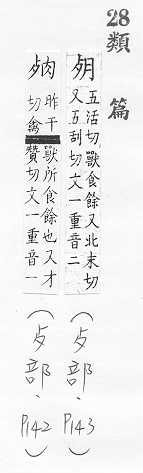 28 類篇
五活切獸食餘又北末切
又五刮切文一重音二
(歺部、P143)
昨干
切禽
獸所食餘也又才
贊切文一重音一
(歺部、P142)